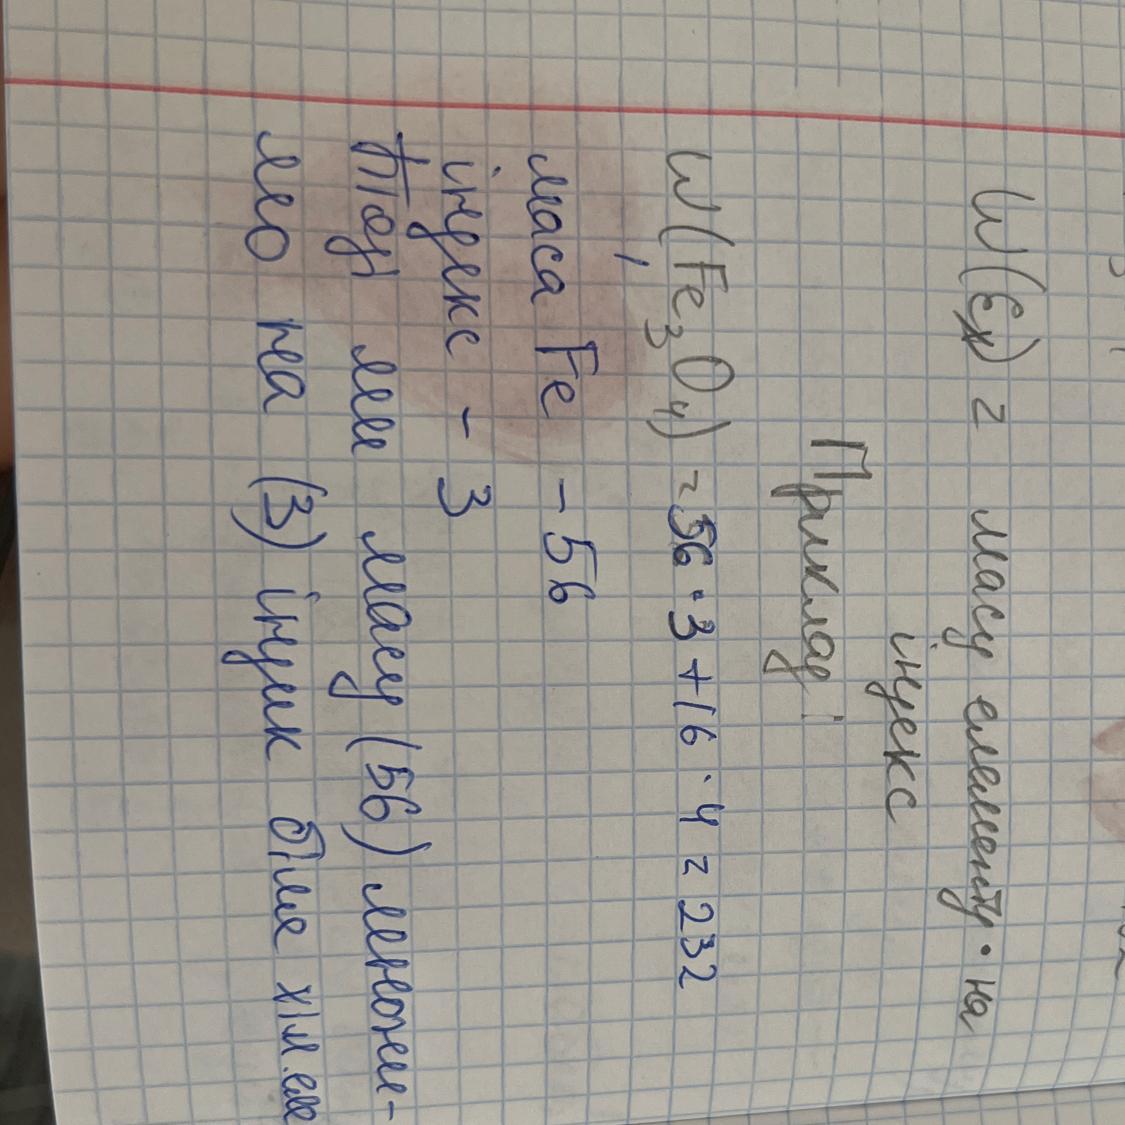 W(Ex) = масу елементу · на
індекс
Приклад:
W(Fe₃O₄) = 56 · 3 + 16 · 4 = 232
маса Fe - 56
індекс - 3
Тоді ми масу (56) множи-
мо на (3) індик біля хім.ел